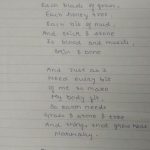 Each blade of grass,
Each honey tree
Each bit of mud,
And stick & stone
Is blood and muscle,
Skin & bone
And Just as I
Need every bit
Of me to make
My body fit,
So Earth needs
Grass & stone & tree
And things that grow here
Naturally.